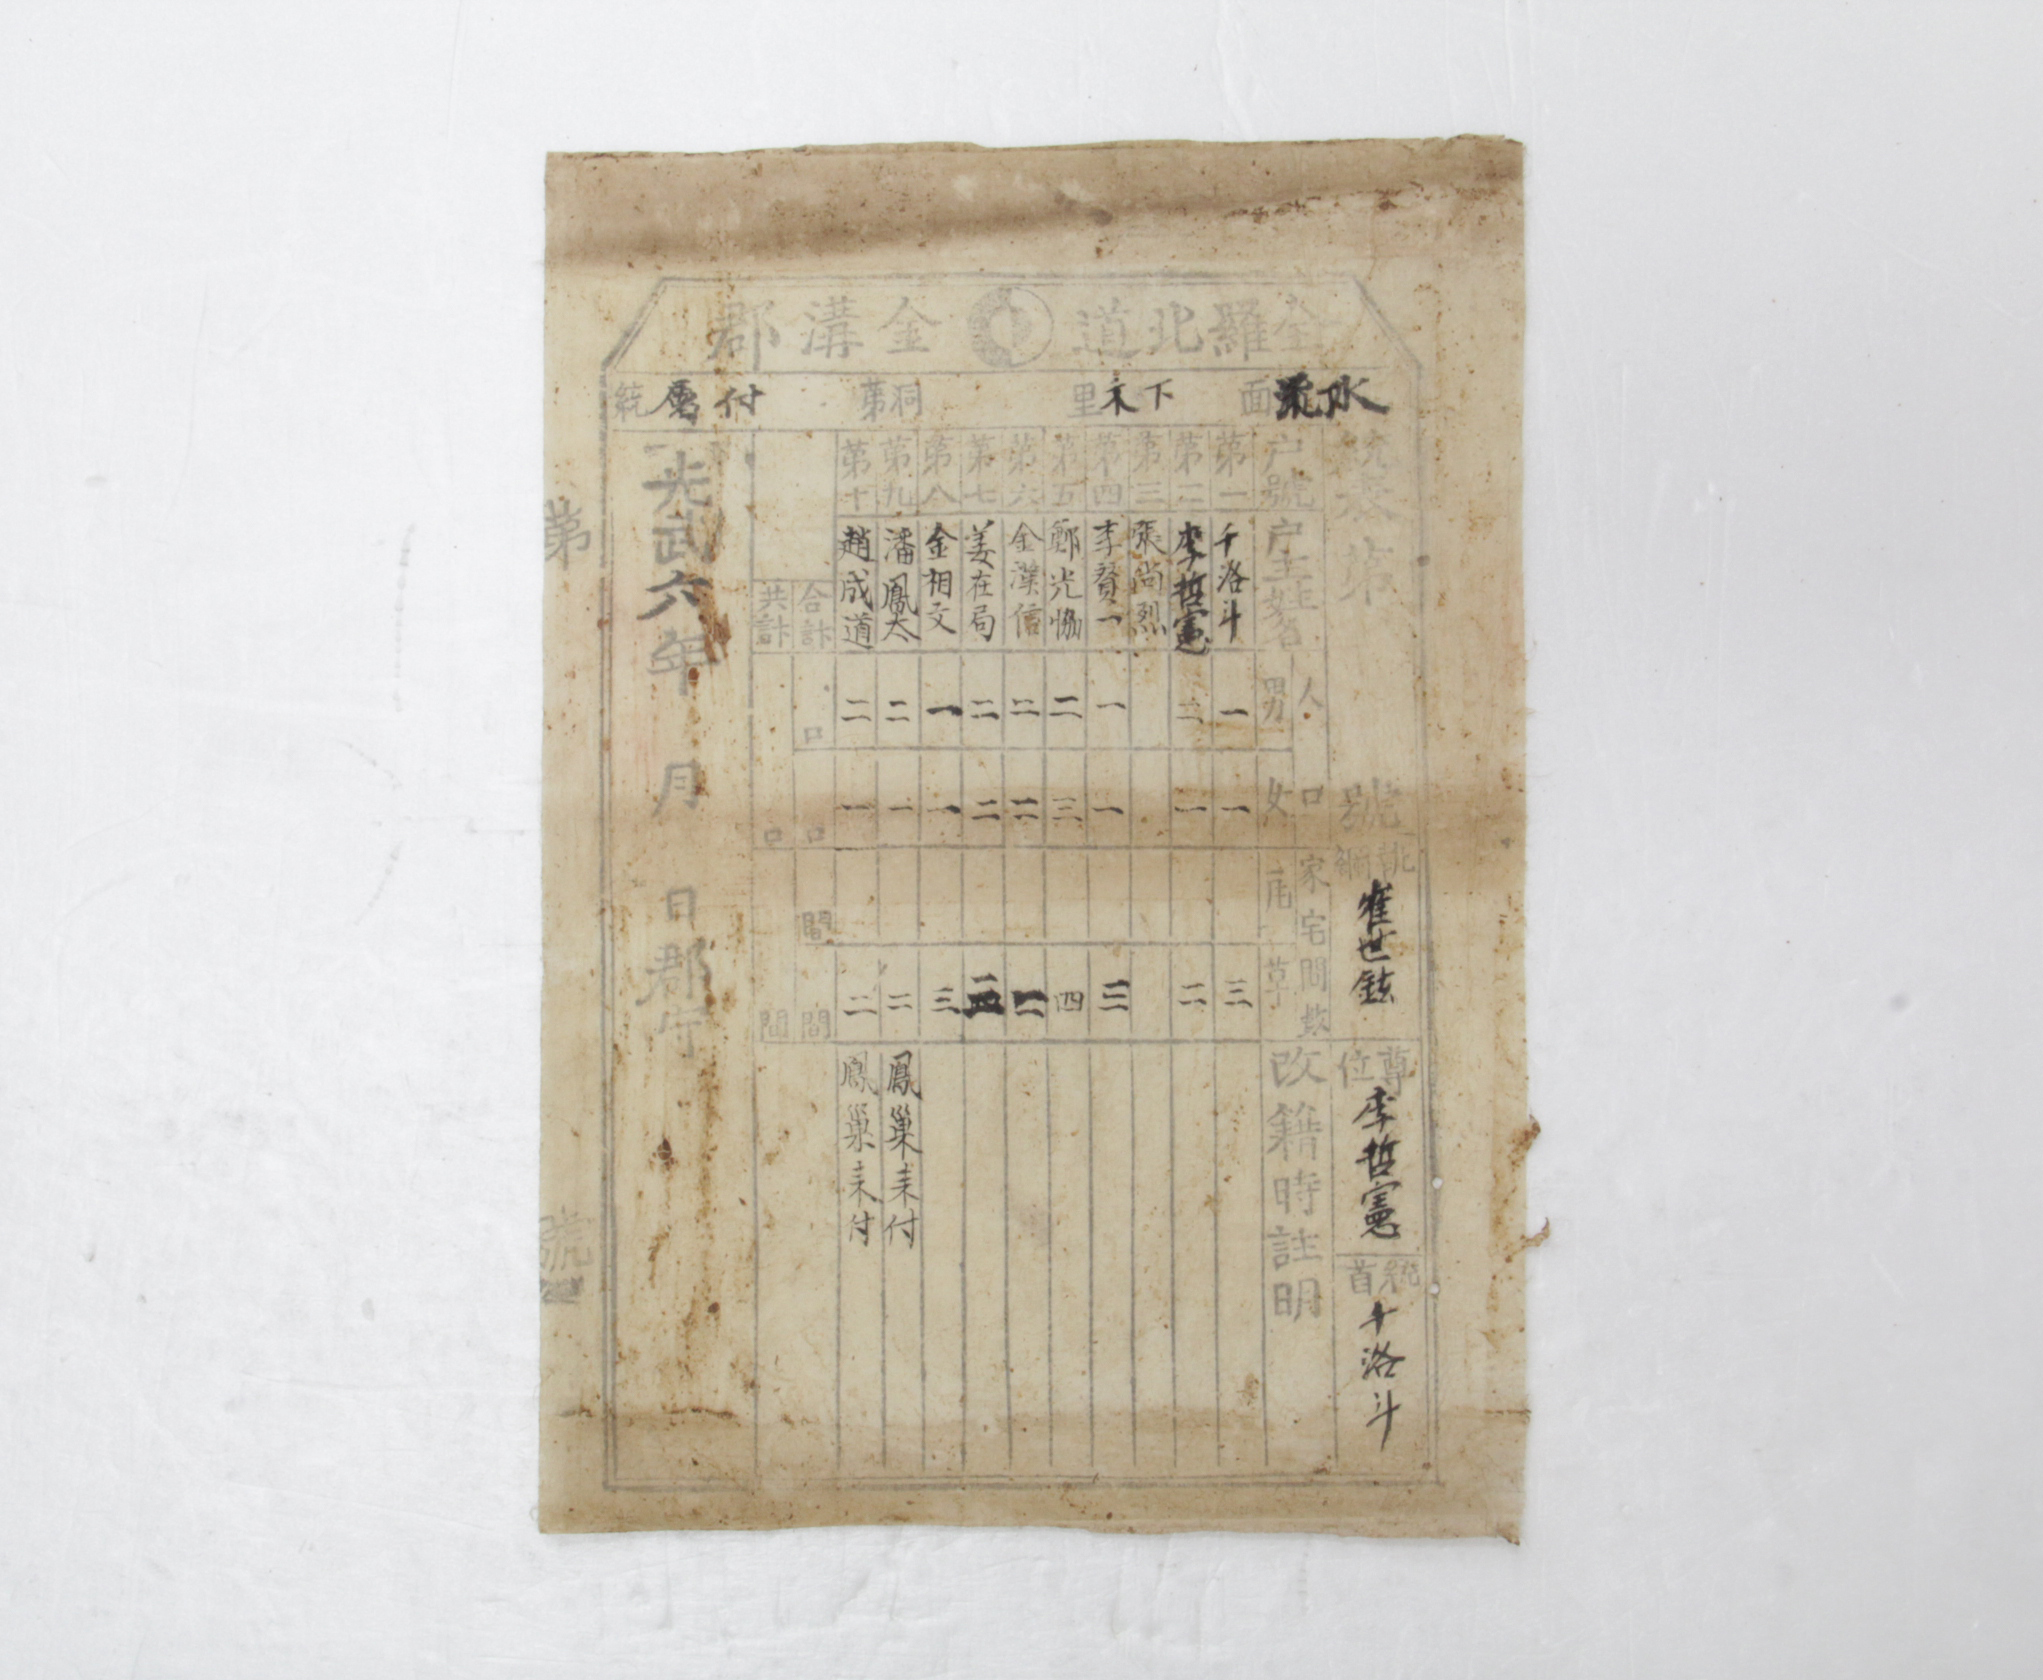 全羅北道 金溝郡
水流面 下木里 洞第 付屬統
統表第 號
執綱 崔世鉉
尊位 李哲憲
統首 千洛斗
戶號 戶主姓名 人口 男 女 家宅間數 瓦 草 改籍時註明
第一 千洛斗 一 一 三
第二 李哲憲 三 一 二
第三 張尚烈
第四 李賛一 一 一 三
第五 鄭光協 二 三 四
第六 金漢信 二 二
第七 姜在局 二 二
第八 金相文 一 一 三
第九 潘鳳太 二 一 二 鳳巢耒付
第十 趙成道 二 一 二 鳳巢耒付
合計 口 口 間 間
共計 口 間
光武六年 月 日 郡守
第 號